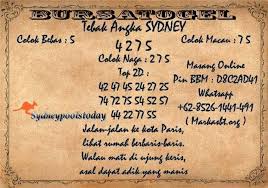 BURSATOGEL
Tebak Angka SYDNEY
Colok Bebas : 5
4 2 7 5
Colok Macau : 7 5
Colok Naga : 2 7 5
Top 2D :
42 47 45 24 27 25
74 72 75 54 52 57
77 22 55 44
44 22 77 55
Masang Online
Pin BBM : D8C2AD41
Whatsapp
+62-8526-1441-499
( Markasbt.org )
Sydneypoolstoday
Jalan-jalan ke kota Paris,
lihat rumah berbaris-baris.
Walau mati di ujung keris,
asal dapat adik yang manis